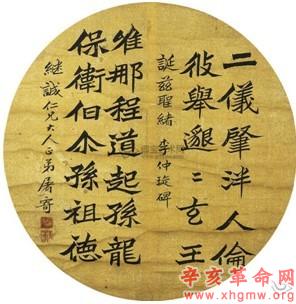 二儀肇泮人倫
攸舉邈〻玄王
誕茲聖緒 李仲璇碑
維那程道起孫龍
保衛伯仌孫祖德
继誠仁兄大人正 弟屠寄
辛亥革命网
www.xhgmw.org